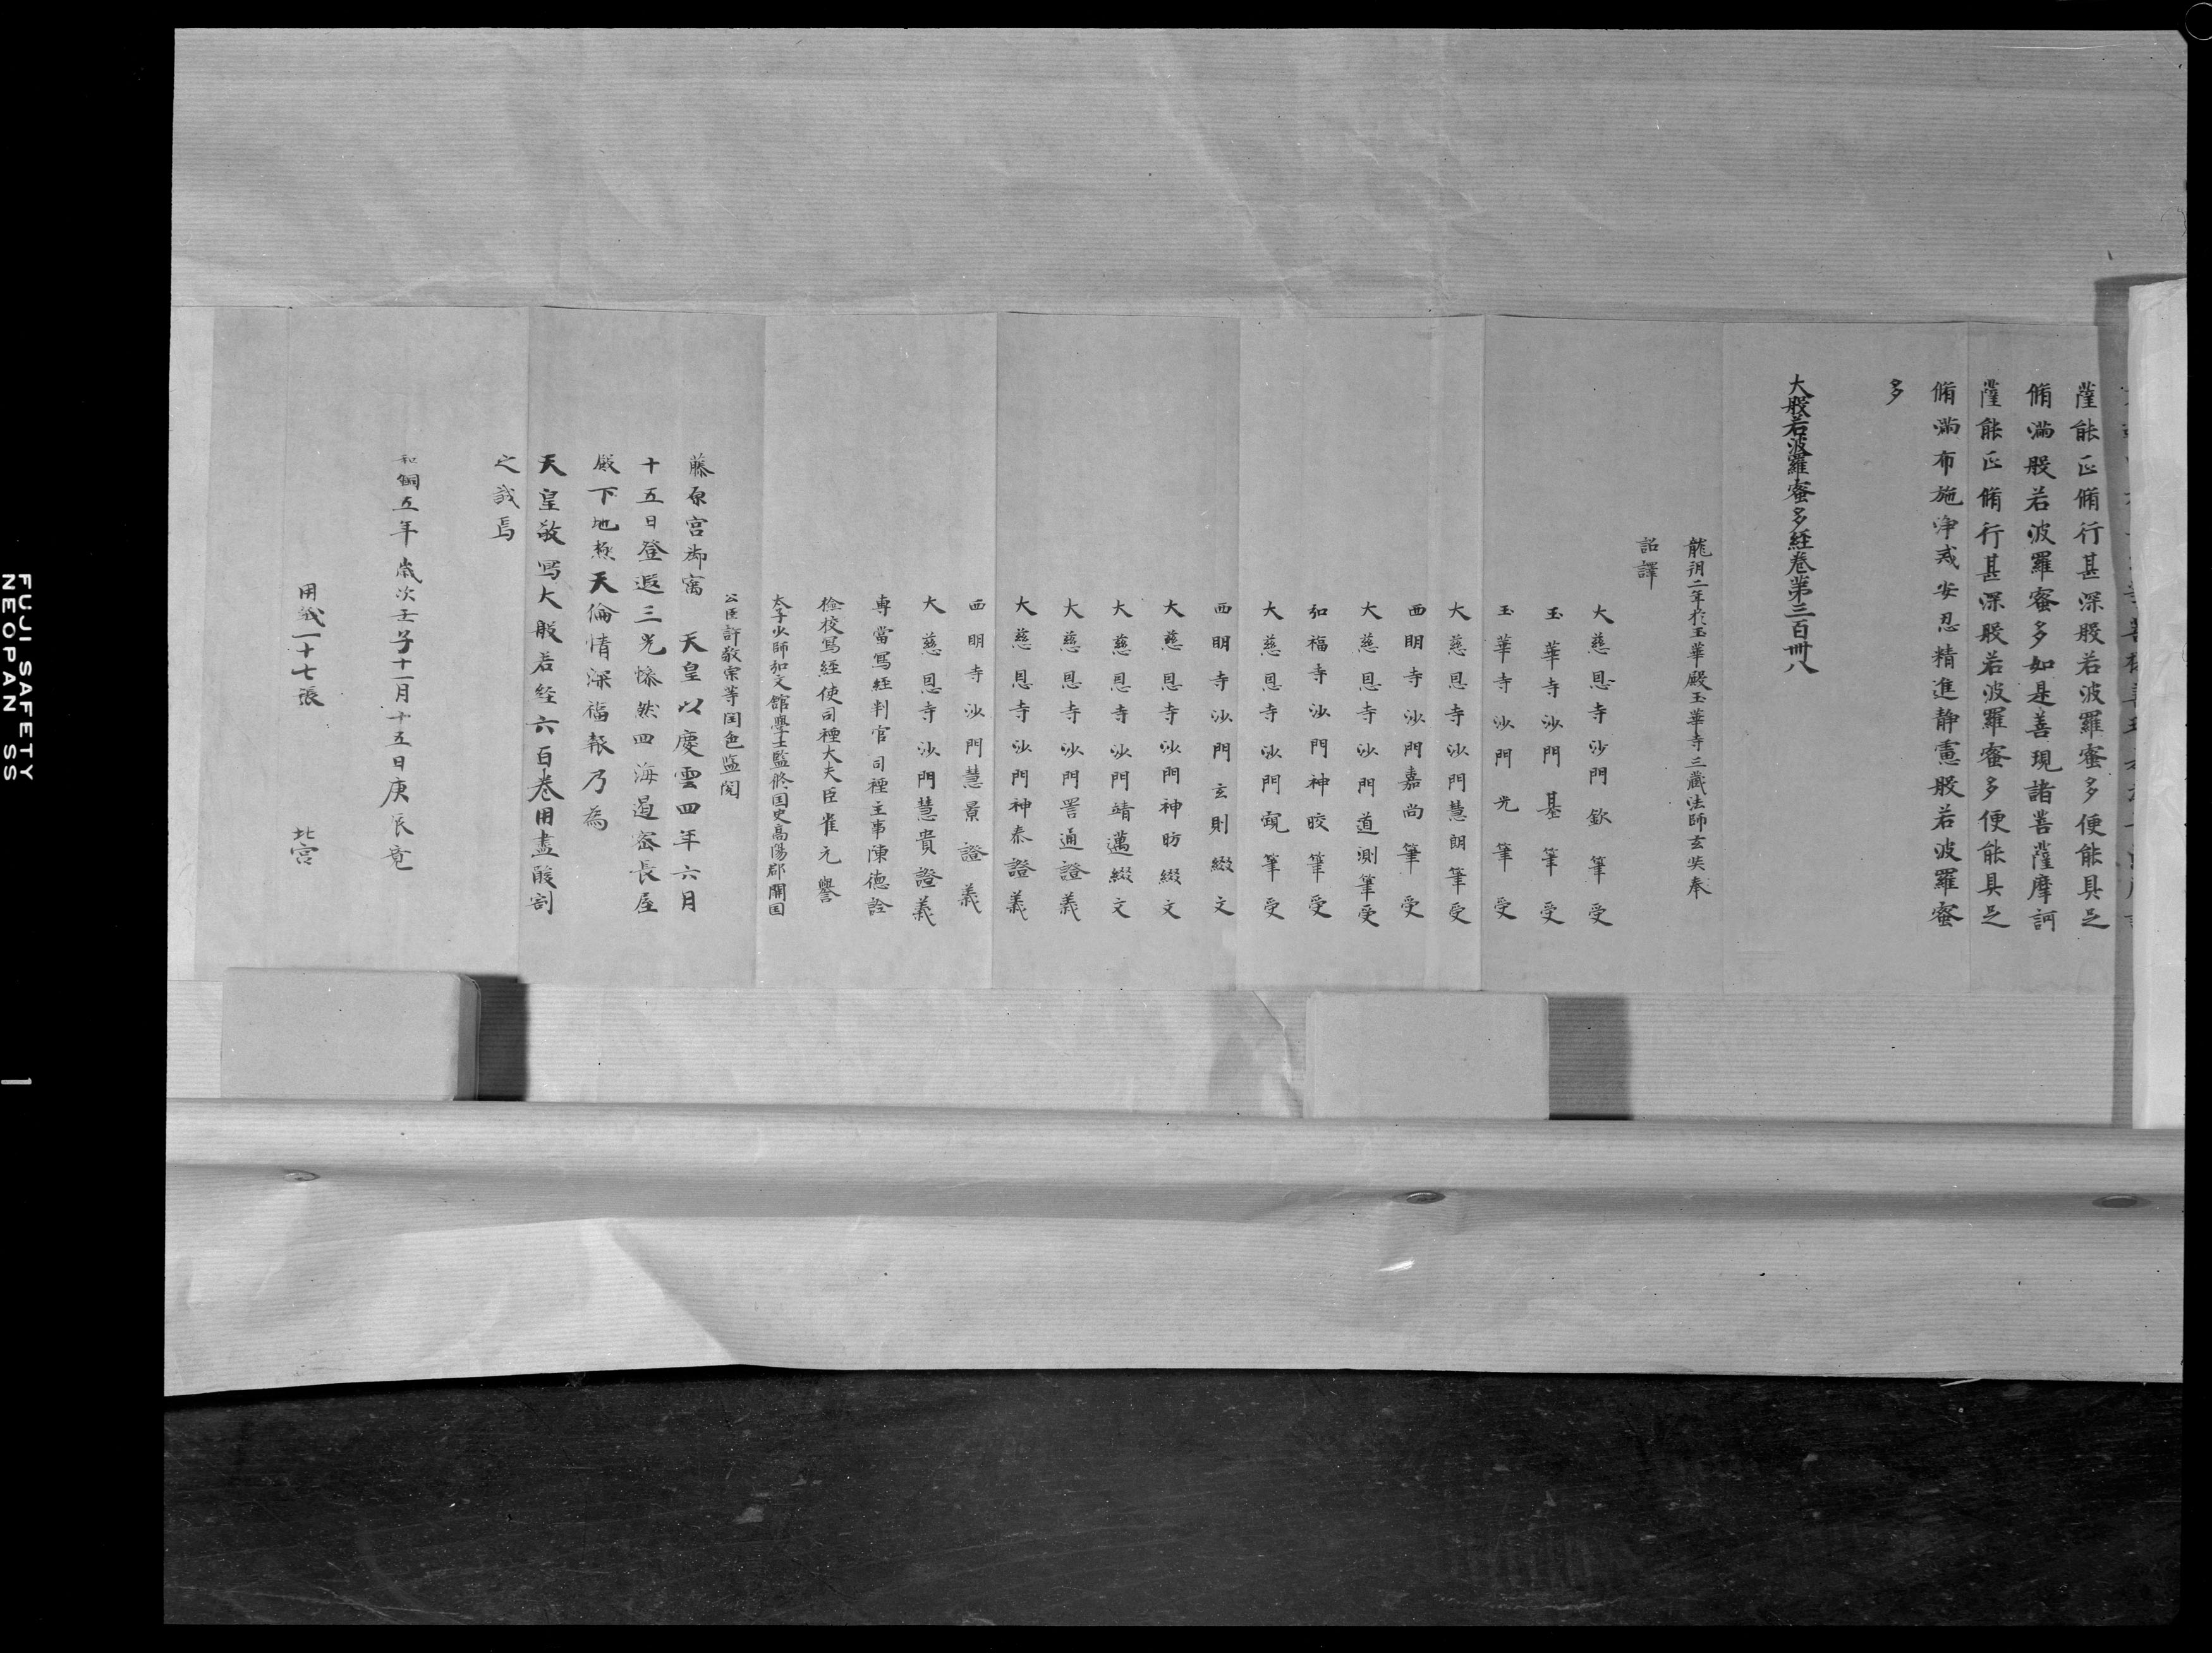 薩能正脩行甚深般若波羅蜜多便能具足
脩滿般若波羅蜜多如是善現諸菩薩摩訶
薩能正脩行甚深般若波羅蜜多便能具足
脩滿布施淨戒安忍精進静慮般若波羅蜜
多
大般若波羅蜜多経卷第三百卌八
龍朔二年於玉華殿玉華寺三藏法師玄奘奉
詔譯
大慈恩寺沙門欽筆受
玉華寺沙門基筆受
玉華寺沙門光筆受
大慈恩寺沙門慧朗筆受
西明寺沙門嘉尚筆受
大慈恩寺沙門道測筆受
弘福寺沙門神晈筆受
大慈恩寺沙門窺筆受
西明寺沙門玄則綴文
大慈恩寺沙門神昉綴文
大慈恩寺沙門靖邁綴文
大慈恩寺沙門詈通證義
大慈恩寺沙門神泰證義
西明寺沙門慧景證義
大慈恩寺沙門慧貴證義
專當寫経判官司禋主事陳德詮
檢校寫経使司禋大夫臣雀元譽
太子少師弘文館學士監脩国史高陽郡開国
公臣許敬宗等閏色監閲
藤原宮御㝢 天皇以慶雲四年六月
十五日登遐三光慘然四海遏密長屋
殿下地極天倫情深福報乃為
天皇敬寫大般若経六百卷用盡酸割
之誠焉
和銅五年歳次壬子十一月十五日庚辰竟
用紙一十七張 北宮
FUJI SAFETY
NEOPAN SS
1